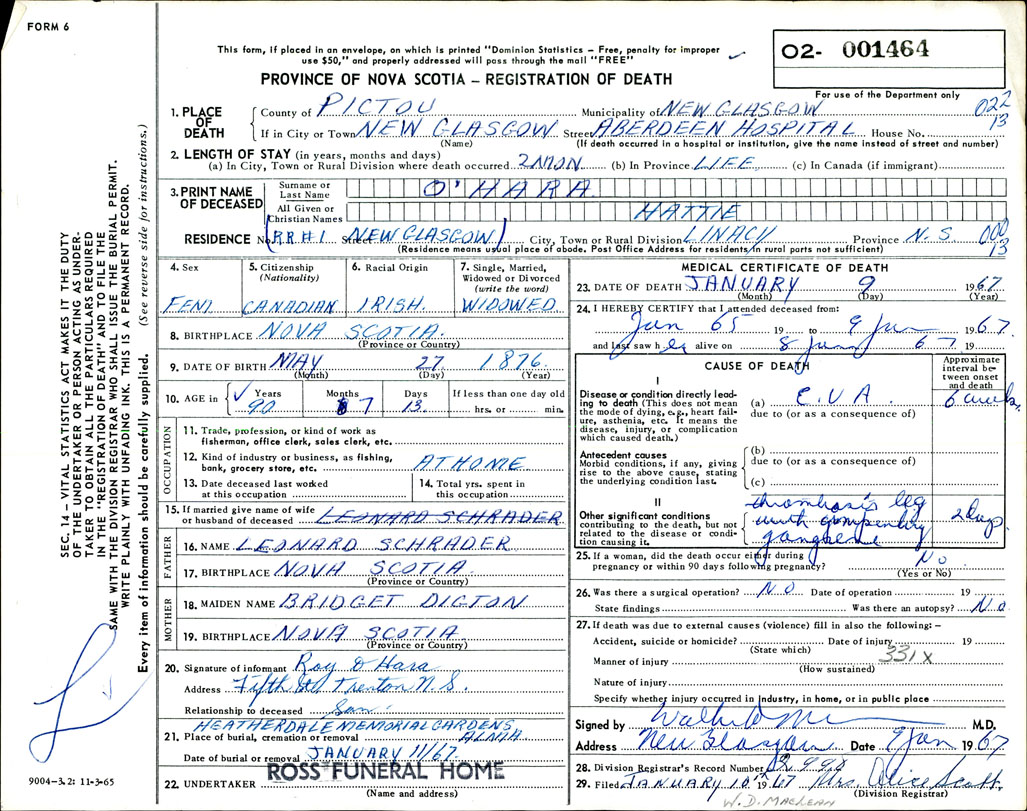 FORM 6
This form, if placed in an envelope, on which is printed "Dominion Statistics – Free, penalty for improper
use $50," and properly addressed will pass through the mail "FREE"
O2- 001464
For use of the Department only
PROVINCE OF NOVA SCOTIA – REGISTRATION OF DEATH
SEC. 14 – VITAL STATISTICS ACT MAKES IT THE DUTY
OF THE UNDERTAKER OR PERSON ACTING AS UNDER-
TAKER TO OBTAIN ALL THE PARTICULARS REQUIRED
IN THE "REGISTRATION OF DEATH" AND TO FILE THE
SAME WITH THE DIVISION REGISTRAR WHO SHALL ISSUE THE BURIAL PERMIT.
WRITE PLAINLY WITH UNFADING INK. THIS IS A PERMANENT RECORD.
Every item of information should be carefully supplied. (See reverse side for instructions.)
1. PLACE OF DEATH
County of PICTOU Municipality of NEW GLASGOW 022 13
If in City or Town NEW GLASGOW Street ABERDEEN HOSPITAL House No.
(Name) (If death occurred in a hospital or institution, give the name instead of street and number)
2. LENGTH OF STAY (in years, months and days)
(a) In City, Town or Rural Division where death occurred 2 MON (b) In Province LIFE (c) In Canada (if immigrant)
3. PRINT NAME OF DECEASED
Surname or Last Name O'HARA
All Given or Christian Names HATTIE
RESIDENCE No. R R #1 Street NEW GLASGOW City, Town or Rural Division LINACY Province N. S. 000 13
(Residence means usual place of abode. Post Office Address for residents in rural parts not sufficient)
4. Sex
FEM
5. Citizenship
(Nationality)
CANADIAN
6. Racial Origin
IRISH.
7. Single, Married,
Widowed or Divorced
(write the word)
WIDOWED
8. BIRTHPLACE NOVA SCOTIA.
(Province or Country)
9. DATE OF BIRTH MAY 27 1876
(Month) (Day) (Year)
10. AGE in Years 90 Months 7 Days 13. If less than one day old
hrs. or min.
OCCUPATION
11. Trade, profession, or kind of work as
fisherman, office clerk, sales clerk, etc.
12. Kind of industry or business, as fishing,
bank, grocery store, etc. AT HOME
13. Date deceased last worked
at this occupation
14. Total yrs. spent in
this occupation
15. If married give name of wife
or husband of deceased LEONARD SCHRADER
FATHER
16. NAME LEONARD SCHRADER
17. BIRTHPLACE NOVA SCOTIA.
(Province or Country)
MOTHER
18. MAIDEN NAME BRIDGET DIGTON
19. BIRTHPLACE NOVA SCOTIA
(Province or Country)
20. Signature of informant Roy O'Hara
Address Fifth St. Trenton N. S.
Relationship to deceased Son
HEATHERDALE MEMORIAL GARDENS
21. Place of burial, cremation or removal ALMA
Date of burial or removal JANUARY 11/67
22. UNDERTAKER ROSS FUNERAL HOME
(Name and address)
9004-3.2: 11-3-65
MEDICAL CERTIFICATE OF DEATH
23. DATE OF DEATH JANUARY 9 1967
(Month) (Day) (Year)
24. I HEREBY CERTIFY that I attended deceased from:
Jan 65 19 to 9 Jan 1967
and last saw her alive on 8 Jan 67 19
CAUSE OF DEATH
Approximate
interval be-
tween onset
and death
I
Disease or condition directly lead-
ing to death (This does not mean
the mode of dying, e.g., heart fail-
ure, asthenia, etc. It means the
disease, injury, or complication
which caused death.)
(a) C.V.A 6 weeks
due to (or as a consequence of)
Antecedent causes
Morbid conditions, if any, giving
rise to the above cause, stating
the underlying condition last.
(b)
due to (or as a consequence of)
(c)
II
Other significant conditions
contributing to the death, but not
related to the disease or condi-
tion causing it.
thrombosis leg
with
gangrene
2 days
25. If a woman, did the death occur either during
pregnancy or within 90 days following pregnancy? No
(Yes or No)
26. Was there a surgical operation? NO Date of operation 19
State findings Was there an autopsy? No
27. If death was due to external causes (violence) fill in also the following: –
Accident, suicide or homicide? Date of injury 19
(State which)
331X
Manner of injury
(How sustained)
Nature of injury
Specify whether injury occurred in industry, in home, or in public place
Signed by M.D.
Address New Glasgow Date 9 Jan 1967
28. Division Registrar's Record Number
29. Filed JANUARY 10th 1967 Mrs. Alice Scott
(Division Registrar)
W. D. MACLEAN